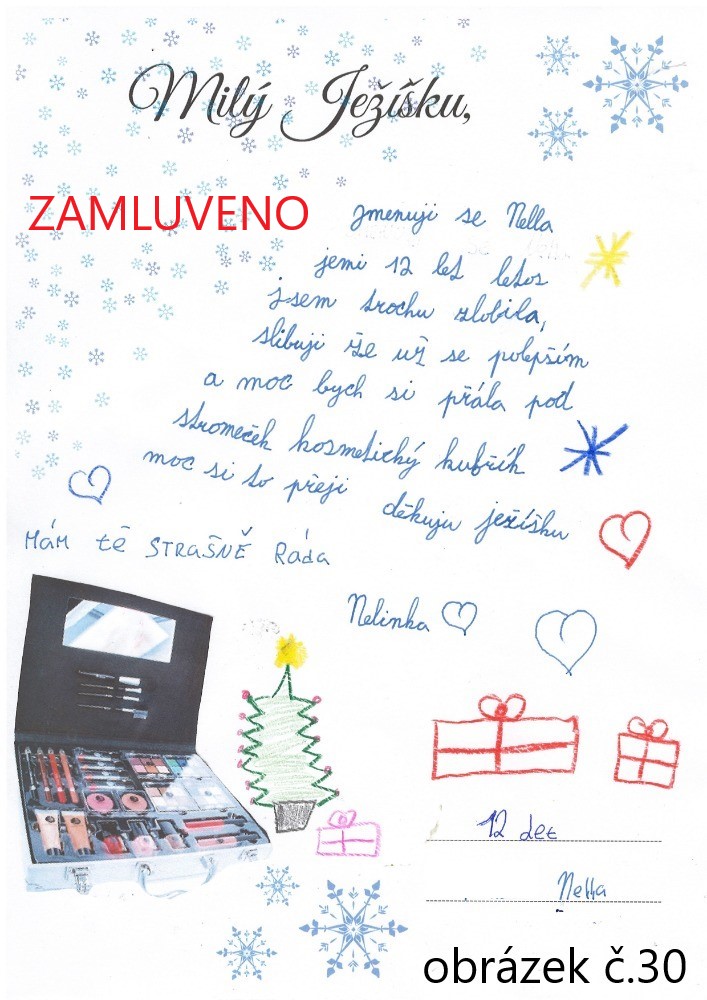 Milý Ježíšku,
ZAMLUVENO
Jmenuji se Nella
jemi 12 let letos
jsem trochu zlobila,
slibuji že už se polepším
a moc bych si přála pod
stromeček kosmetický kubřík
moc si to přeji
děkuju ježíšku
MÁM tě STRAŠNĚ Ráda
Nelinka
12 let
Nella
obrázek č.30